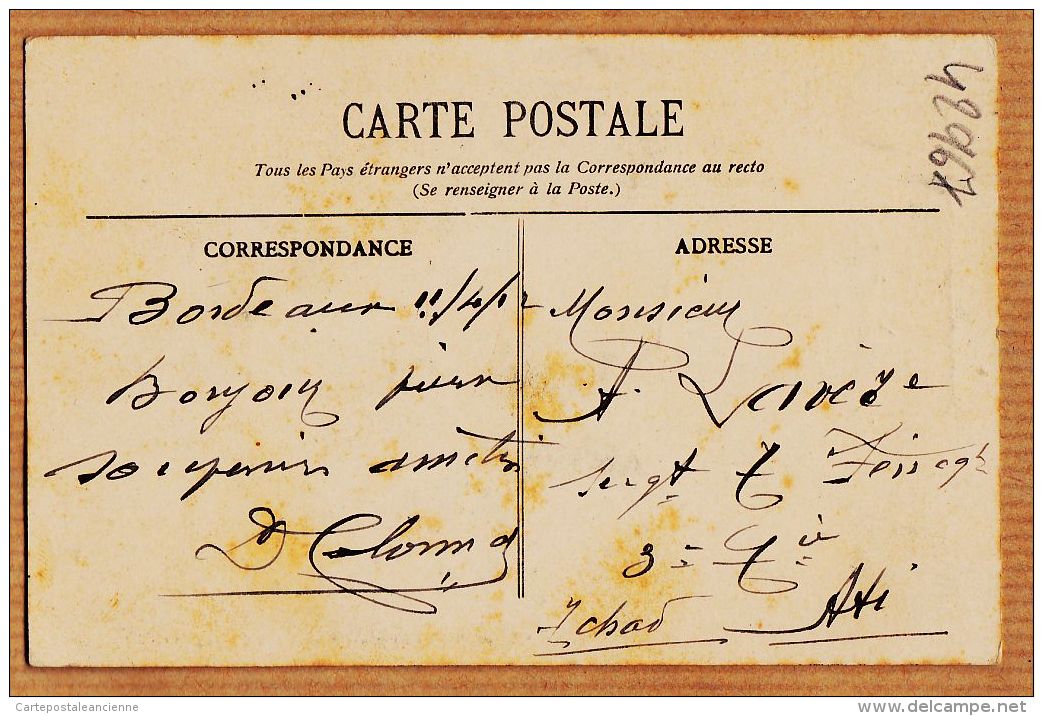 42967
CARTE POSTALE
Tous les Pays étrangers n'acceptent pas la Correspondance au recto
(Se renseigner à la Poste.)
CORRESPONDANCE
Bordeaux 11/4/12
Bonjour
souvenirs
D
ADRESSE
Monsieur
A. Lavèze
Sergt
3e Cie
Tchad Ati
Cartepostaleancienne
delcampe.net